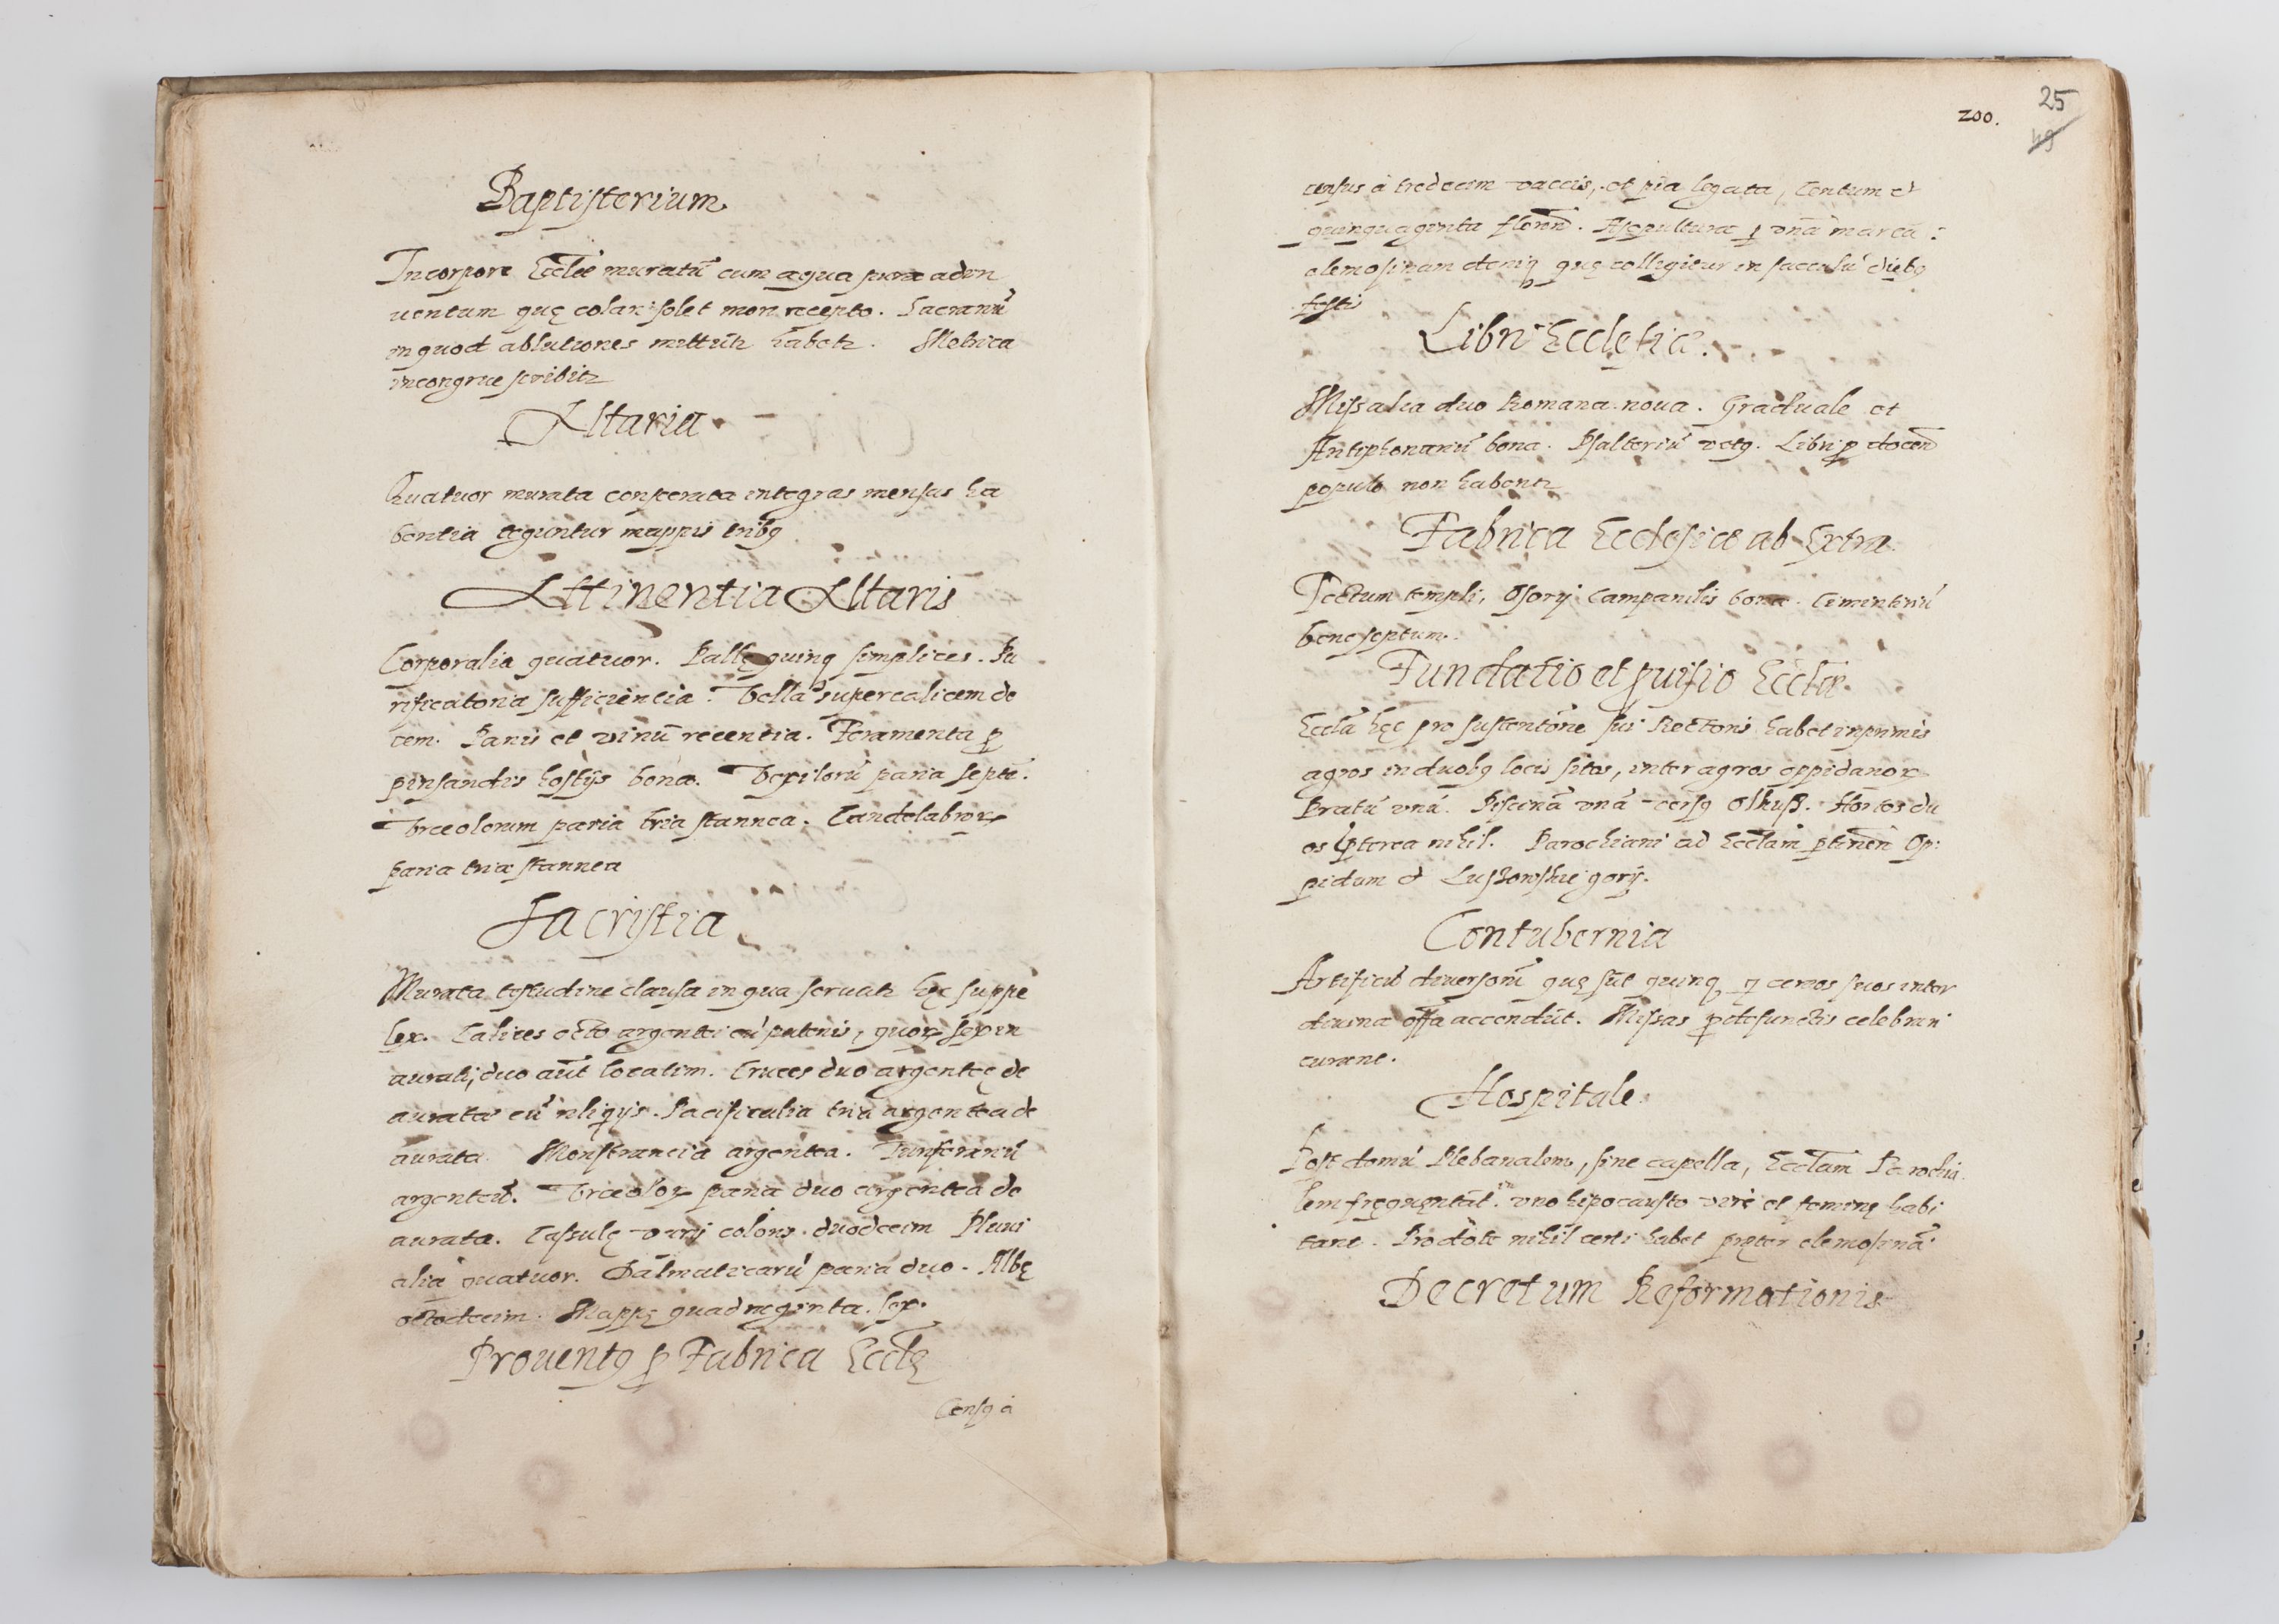 Baptisterium
In corpore Eccl̃ae muratū cum aqua pura aden
uentum quę colari solet mon recepto. Sacrariū
in quod ablutiones mittūtr habetr. Metrica
incongrue scribitr
Altaria
Quatuor murata consecrata integras mensas ha
bentia teguntur mappis tribꝰ
Attinentia Altaris
Corporalia quatuor. Pallę quinqꝫ simplices. Pu
rificatoria sufficiencia. Vella super calicem de
cem. Panis et vinū recentia. Feramenta ꝓ
pinsandis hostijs bona. Vexilorū paria septē.
Vrceolorum paria tria stannea. Candelabroꝝ
paria tria stannea
Sacristia
Murata testudine clausa in qua seruatr hęc suppe
lex. Calices octo argentei cū patenis, quoꝝ sex in
aurati, duo aūt localim. Cruces duo argenteę de
auratae cū reliqijs. Pacificalia tria argentea de
aurata. Monstrancia argentea. Turiferariū
argenteū. Vrceoloꝝ paria duo argentea de
aurata. Cassulę varij coloris duodecim Pluui
alia quatuor. Dalmaticarū paria duo. Albę
octodecim. Mappę quadraginta sex.
Prouentꝰ ꝓ Fabrica Eccl̃ę
Censꝰ á
200.
25
49
census á tredecim vaccis, et pia legata, Centum et
quinquaginta floren̄. A sepultura ꝑ vnā marcā:
elemosinam deniqꝫ quę colligitur in sacculū diebꝰ
festis
Libri Ecclesiæ.
Missalia duo Romana noua. Graduale et
Antiphonariū bona. Psalteriū vetꝰ. Libri ꝓ docen̄
populo non habentr
Fabrica Ecclesiæ ab Extra
Tectum templi, Osorij Campanilis bona. Cimiteriū
bene septum.
Fundatio et ꝓuisio Eccl̃æ
Eccl̃a hęc pro sustentōne sui Rectoris habet inprimis
agros in duobꝰ locis sitos, inter agros oppidanoꝝ
Pratū vnū. Piscinā vnā versꝰ Olkusß. Hortos du
os p̄terea nihil. Parochiani ad Eccl̃am ꝑtinen̄ Op:
pidum et
Contubernia
Artificū diuersorū quę sūt quinqꝫ q̄ cereos suos inter
diuina offa accendūt. Missas ꝓ defunctis celebrari
curant.
Hospitale
Post domū Plebanalem, sine capella, Eccl̃am Parochia
lem fręquęntāt. in vno hipocausto viri et feminę habi
tant. Pro dote nihil certi habet pręter elemosinā
Decretum Reformationis